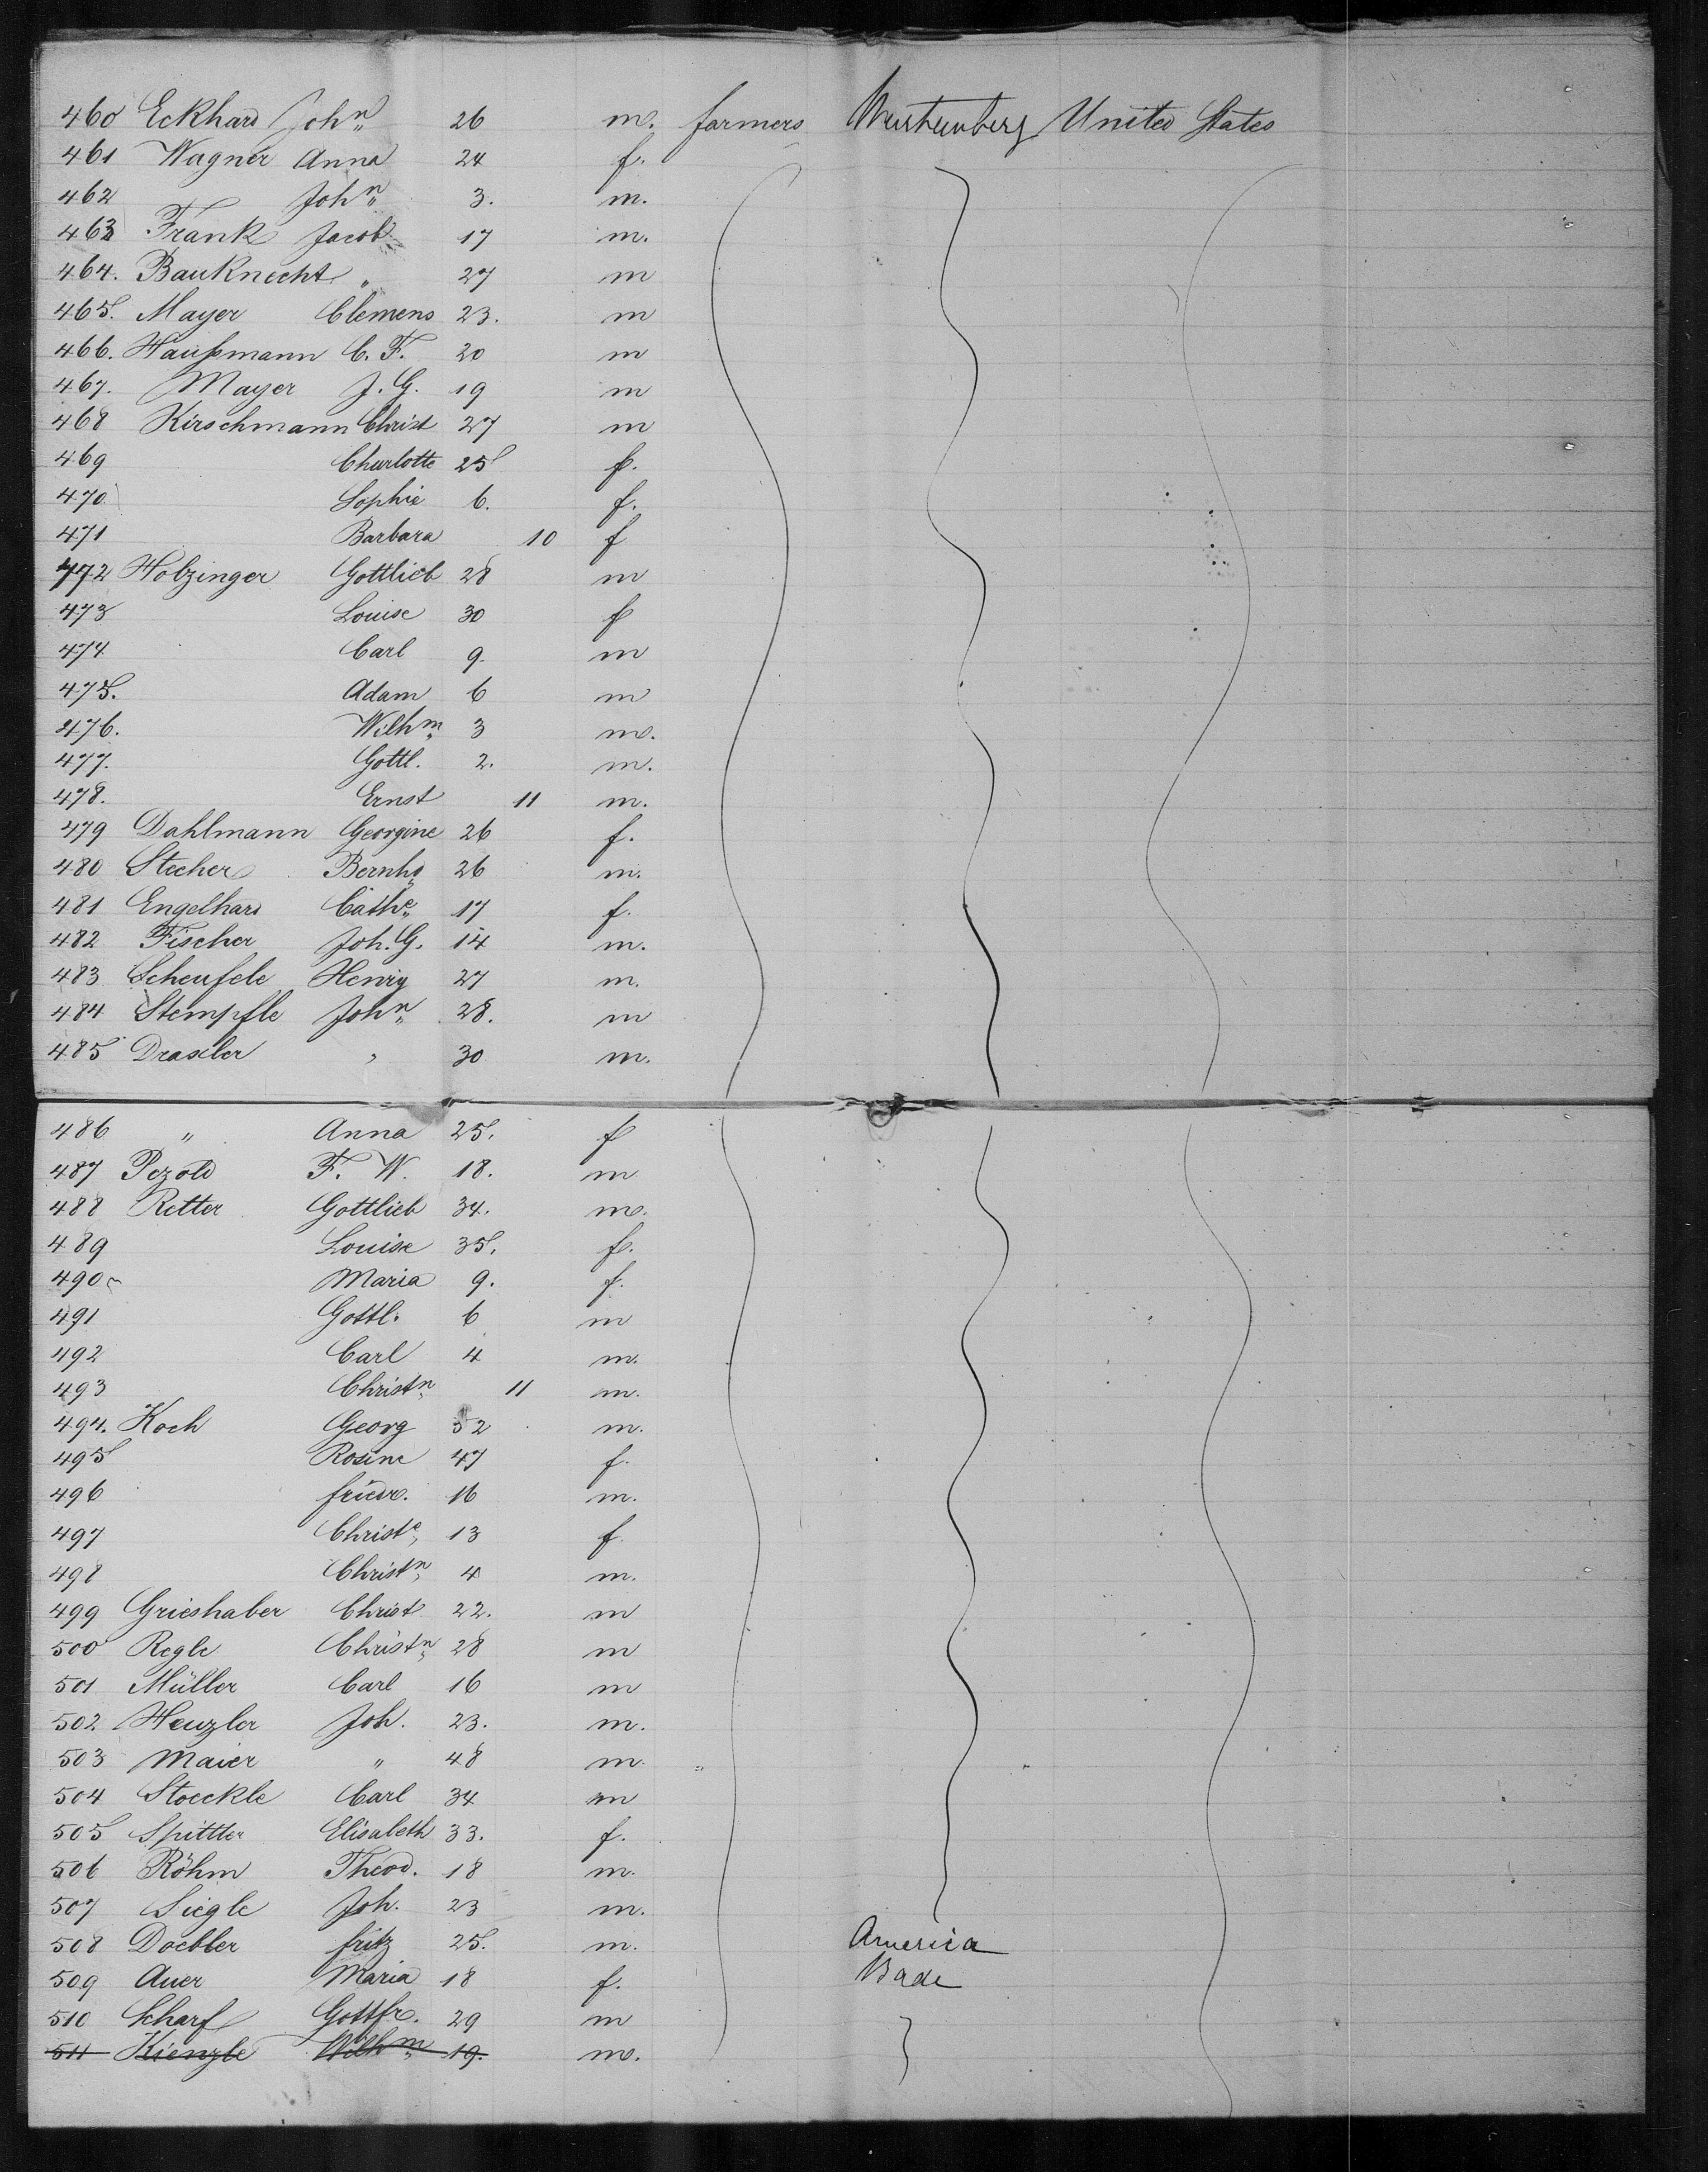 460 Eckhard Johⁿ 26 m. farmers Wurtemberg United States
461 Wagner Anna 24 f.
462 Johⁿ 3. m.
463 Frank Jacob 17 m.
464. Bauknecht " 27 m
465. Mayer Clemens 23. m
466. Haußmann C. F. 20 m
467. Mayer J. G. 19 m
468 Kirschmann Christ 27 m
469 Charlotte 25 f.
470 Sophie 6. f.
471 Barbara 10 f
472 Holzinger Gottlieb 28 m
473 Louise 30 f
474 Carl 9. m
475. Adam 6 m
476. Wilhᵐ 3 m.
477. Gottl. 2. m.
478. Ernst 11 m.
479 Dahlmann Georgine 26 f.
480 Stecher Bernhd 26 m.
481 Engelhard Cathᵉ 17 f.
482 Fischer Joh. G. 14 m.
483 Scheufele Henry 27 m.
484 Stempfle Johⁿ 28. m
485 Draxler " 30 m.
486 " Anna 25. f
487 Pezold F. W. 18. m
488 Retter Gottlieb 34. m.
489 Louise 35. f.
490 Maria 9. f.
491 Gottl. 6 m
492 Carl 4 m.
493 Christⁿ 11 m.
494. Koch Georg 52 m.
495 Rosine 47 f.
496 friedr. 16 m.
497 Christᵉ 13 f.
498 Christⁿ 4 m.
499 Grieshaber Christ 22. m
500 Regle Christⁿ 28 m
501 Müller Carl 16 m
502 Henzler Joh. 23. m.
503 Maier " 48 m.
504 Stoeckle Carl 34 m
505 Spittler Elisabeth 33. f.
506 Röhm Theod. 18 m.
507 Siegle Joh. 23 m.
508 Doebler fritz 25. m. America
509 Auer Maria 18 f. Bade
510 Scharf Gottfr. 29 m
511 Kienzle Wilhᵐ 19. m.